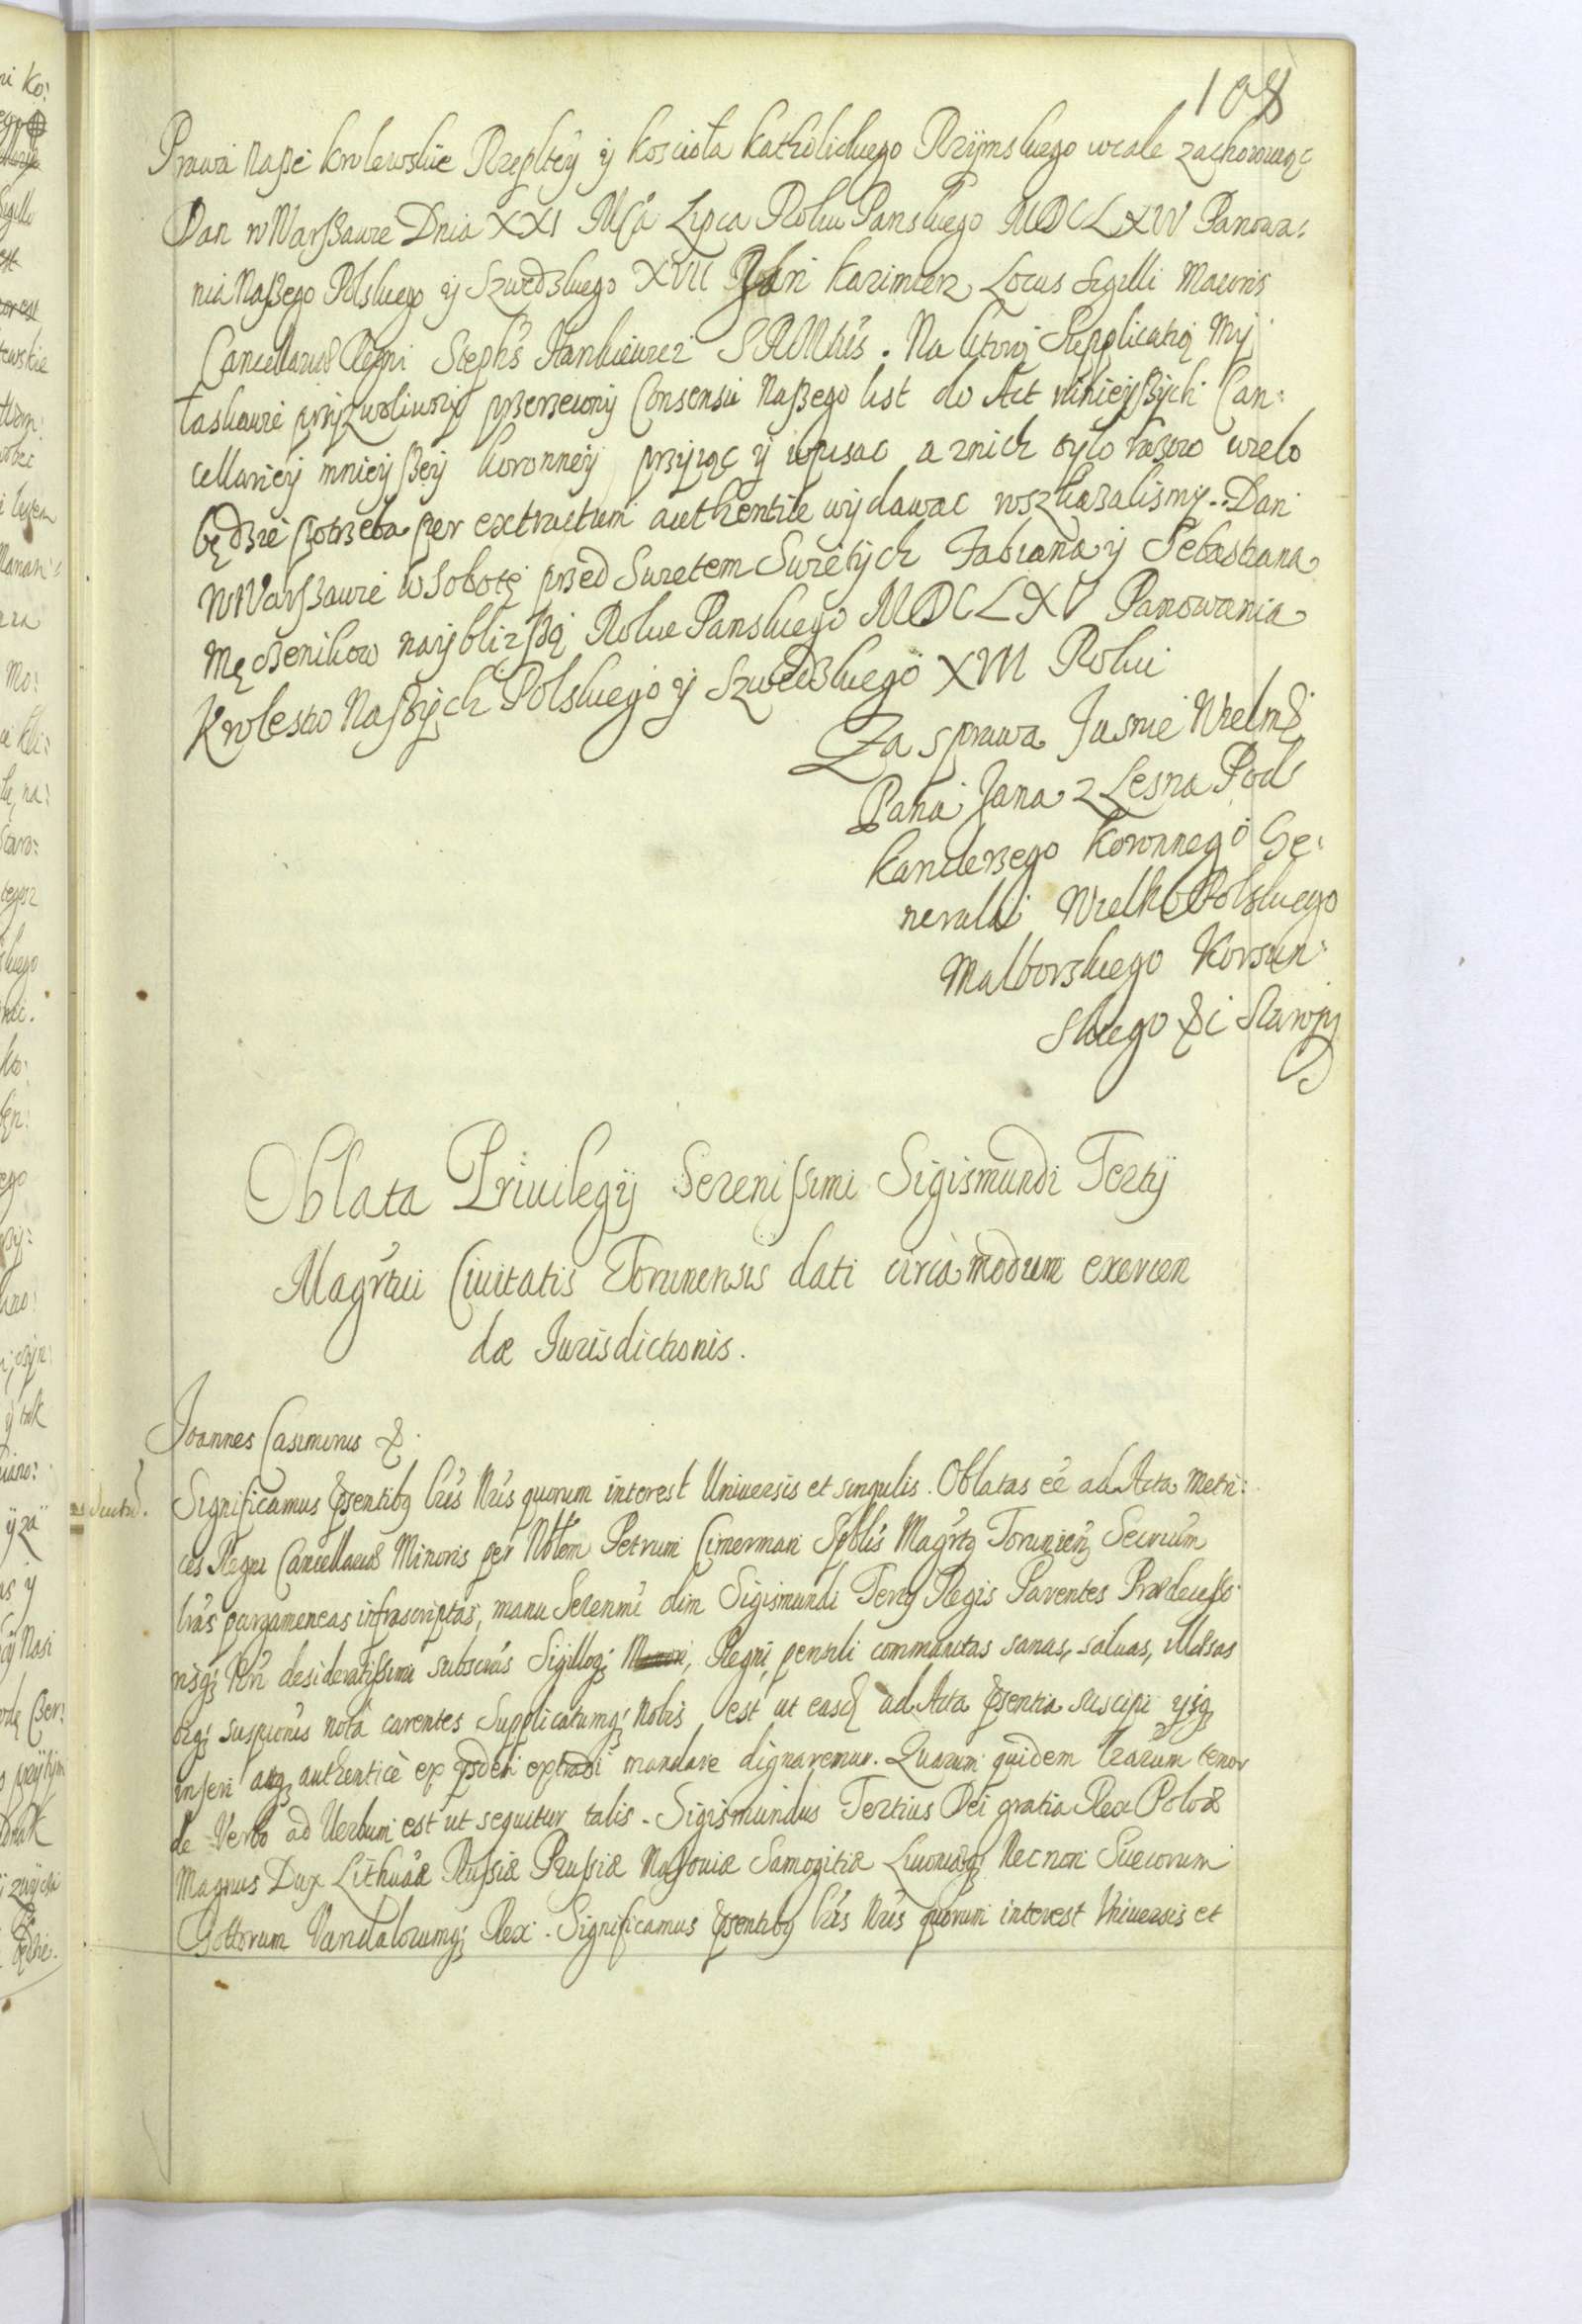 108
Prawa naße krolewskie Rzepltey y koscioła katholickiego Rzymskiego wcale zachowuiąc
Dan w Warßawie Dnia XXI Mca Lipca Roku Panskiego MDCLXIV Panowa:
nia Naßego Polskiego y Szwedskiego XVII Jan Kazimierz Locus Sigilli Maioris
Cancellariæ Regni Stephs Hankiewicz SRMtis. Na ktorą Supplicatią My
łaskawie przyzwoliwszy przerzeczony Consensu Naßego list do Act ninieyßych Can:
cellariey mnieyßey koronney przyiąc y wpisac a z nich tylo wielo
będzie potrzeba per extractum authentice wydawac wszkazalismy. Dan
w Warßawie w Sobotę przed Swietem Swiętych Fabiana y Sebastiana
Męczenikow nayblizßą Roku Panskiego MDCLXV Panowania
Krolestw Naßych Polskiego y Szwedskiego XVII Roku
Za sprawa Jasnie Wielmo
Pana Jana z Lesna Pod
kanclerzego Koronnego Ge:
nerala Wielko Polskiego
Malborskiego Korsun:
skiego &c Starosty
Oblata Priuilegij Serenissimi Sigismundi Tertij
Magrtui Ciuitatis Torunensis dati circa modum exercen
dæ Iurisdictionis.
Joannes Casimirus &.
Significamus psentibq lris Nris quorum interest Uniuersis et singulis. Oblatas ee ad Acta Metri:
ces Regni Cancellariæ Minoris per Nblem Petrum Cimerman Spblis Magrtq Torunien Secrium
lras pargameneas infrascriptas, manu Serenmi olim Sigismundi Tertij Regis Parentes Prædecesso
risq; Nri desideratissimi subscras Sigilloq; Regni pensili communitas sanas, saluas, illæsas
oiq; suspionis notâ carentes Supplicatumq; Nobis est ut easd ad Acta psentia suscipi ysq
inseri atq authenticè ex ysdem extradi mandare dignaremur. Quarum quidem lrarum tenor
de Verbo ad Verbum est ut sequitur talis. Sigismundus Tertius Dei gratia Rex Poloæ
Magnus Dux Lithuaæ Russiæ Prussiæ Masouiæ Samogitiæ Liuoniæq; Necnon Suecorum
Gottorum Vandalorumq; Rex. Significamus psentibq lris Nris quorum interest Vniuersis et